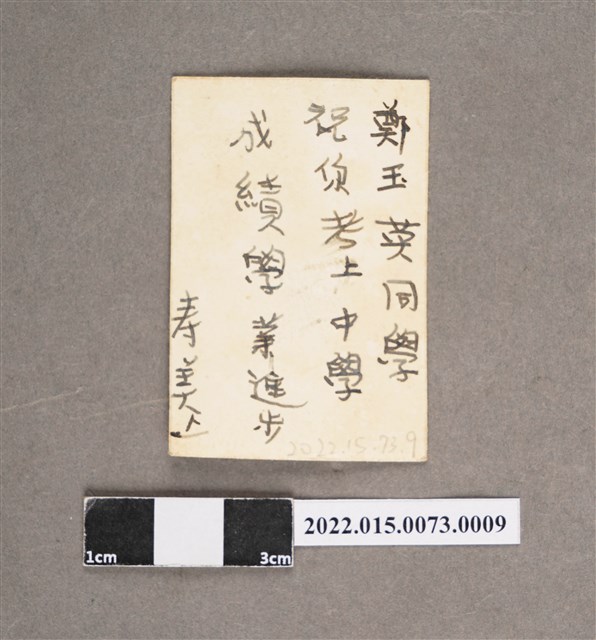 鄭玉英同學
祝你考上中學
成績學業進步
寿美上
2022.15.73.9
2022.015.0073.0009
1cm
3cm